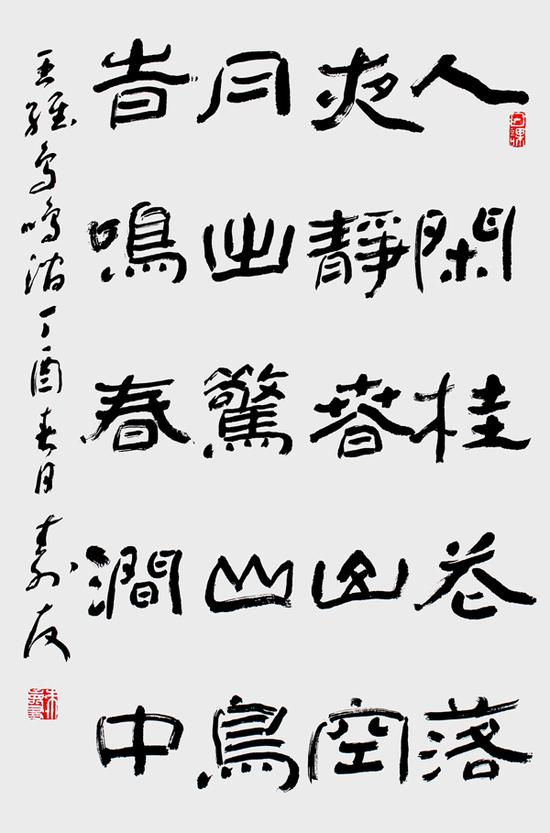 人閑桂花落
夜靜萅山空
月出驚山鳥
旹鳴春澗中
王維鳥鳴澗丁酉春月壽友